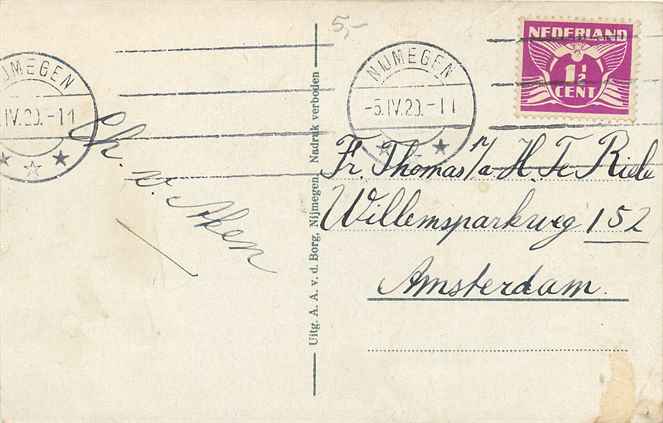 5,-
NIJMEGEN
-5.IV.29.-11
NIJMEGEN
.IV.29.-11
NEDERLAND
1½
CENT
Ch. v. Aken
Uitg. A. A. v. d. Borg, Nijmegen. Nadruk verboden
Fr. Thomas H. Te Riele
Willemsparkweg 152
Amsterdam.